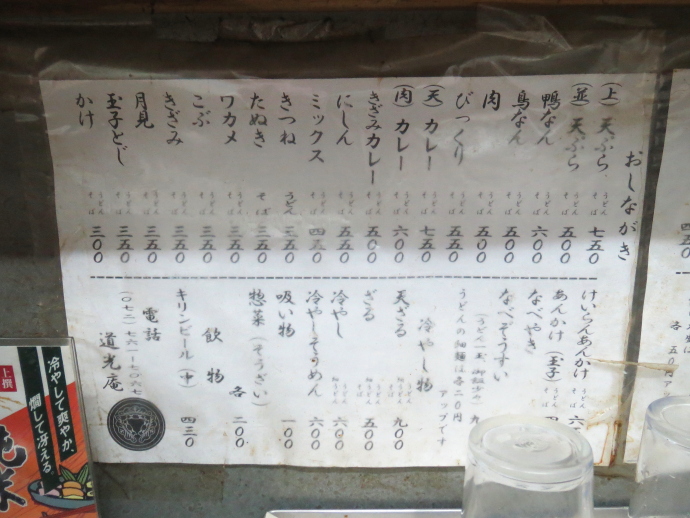 おしながき
(上) 天ぷら うどん そば 七五0
(並) 天ぷら うどん そば 五00
鴨なん うどん そば 六00
鳥なん うどん そば 五00
肉 うどん そば 五00
びっくり うどん そば 五五0
(天) カレー うどん そば 七五0
(肉) カレー うどん そば 六00
きざみカレー うどん そば 五00
にしん うどん そば 五五0
ミックス うどん そば 四五0
きつね うどん 三五0
たぬき そば 三五0
ワカメ うどん そば 三五0
こぶ うどん そば 三五0
きざみ うどん そば 三五0
月見 うどん そば 三五0
玉子とじ うどん そば 三五0
かけ うどん そば 三00
けいらんあんかけ うどん そば 六
あんかけ (玉子) うどん そば
なべやき
なべぞうすい
(うどん一玉、御飯少々) 九
うどんの細麺は各二0円
アップです
冷やし物
天ざる 九00
ざる 五00
冷やし うどん 六00
冷やしそうめん 六00
吸い物 一00
惣菜 (そうざい) 各 二00
飲物
キリンビール (中) 四三0
電話
(0七二)七六一-七0六七
道光庵
各 五0円
上撰
冷やして爽やか、
燗して冴える。
純米